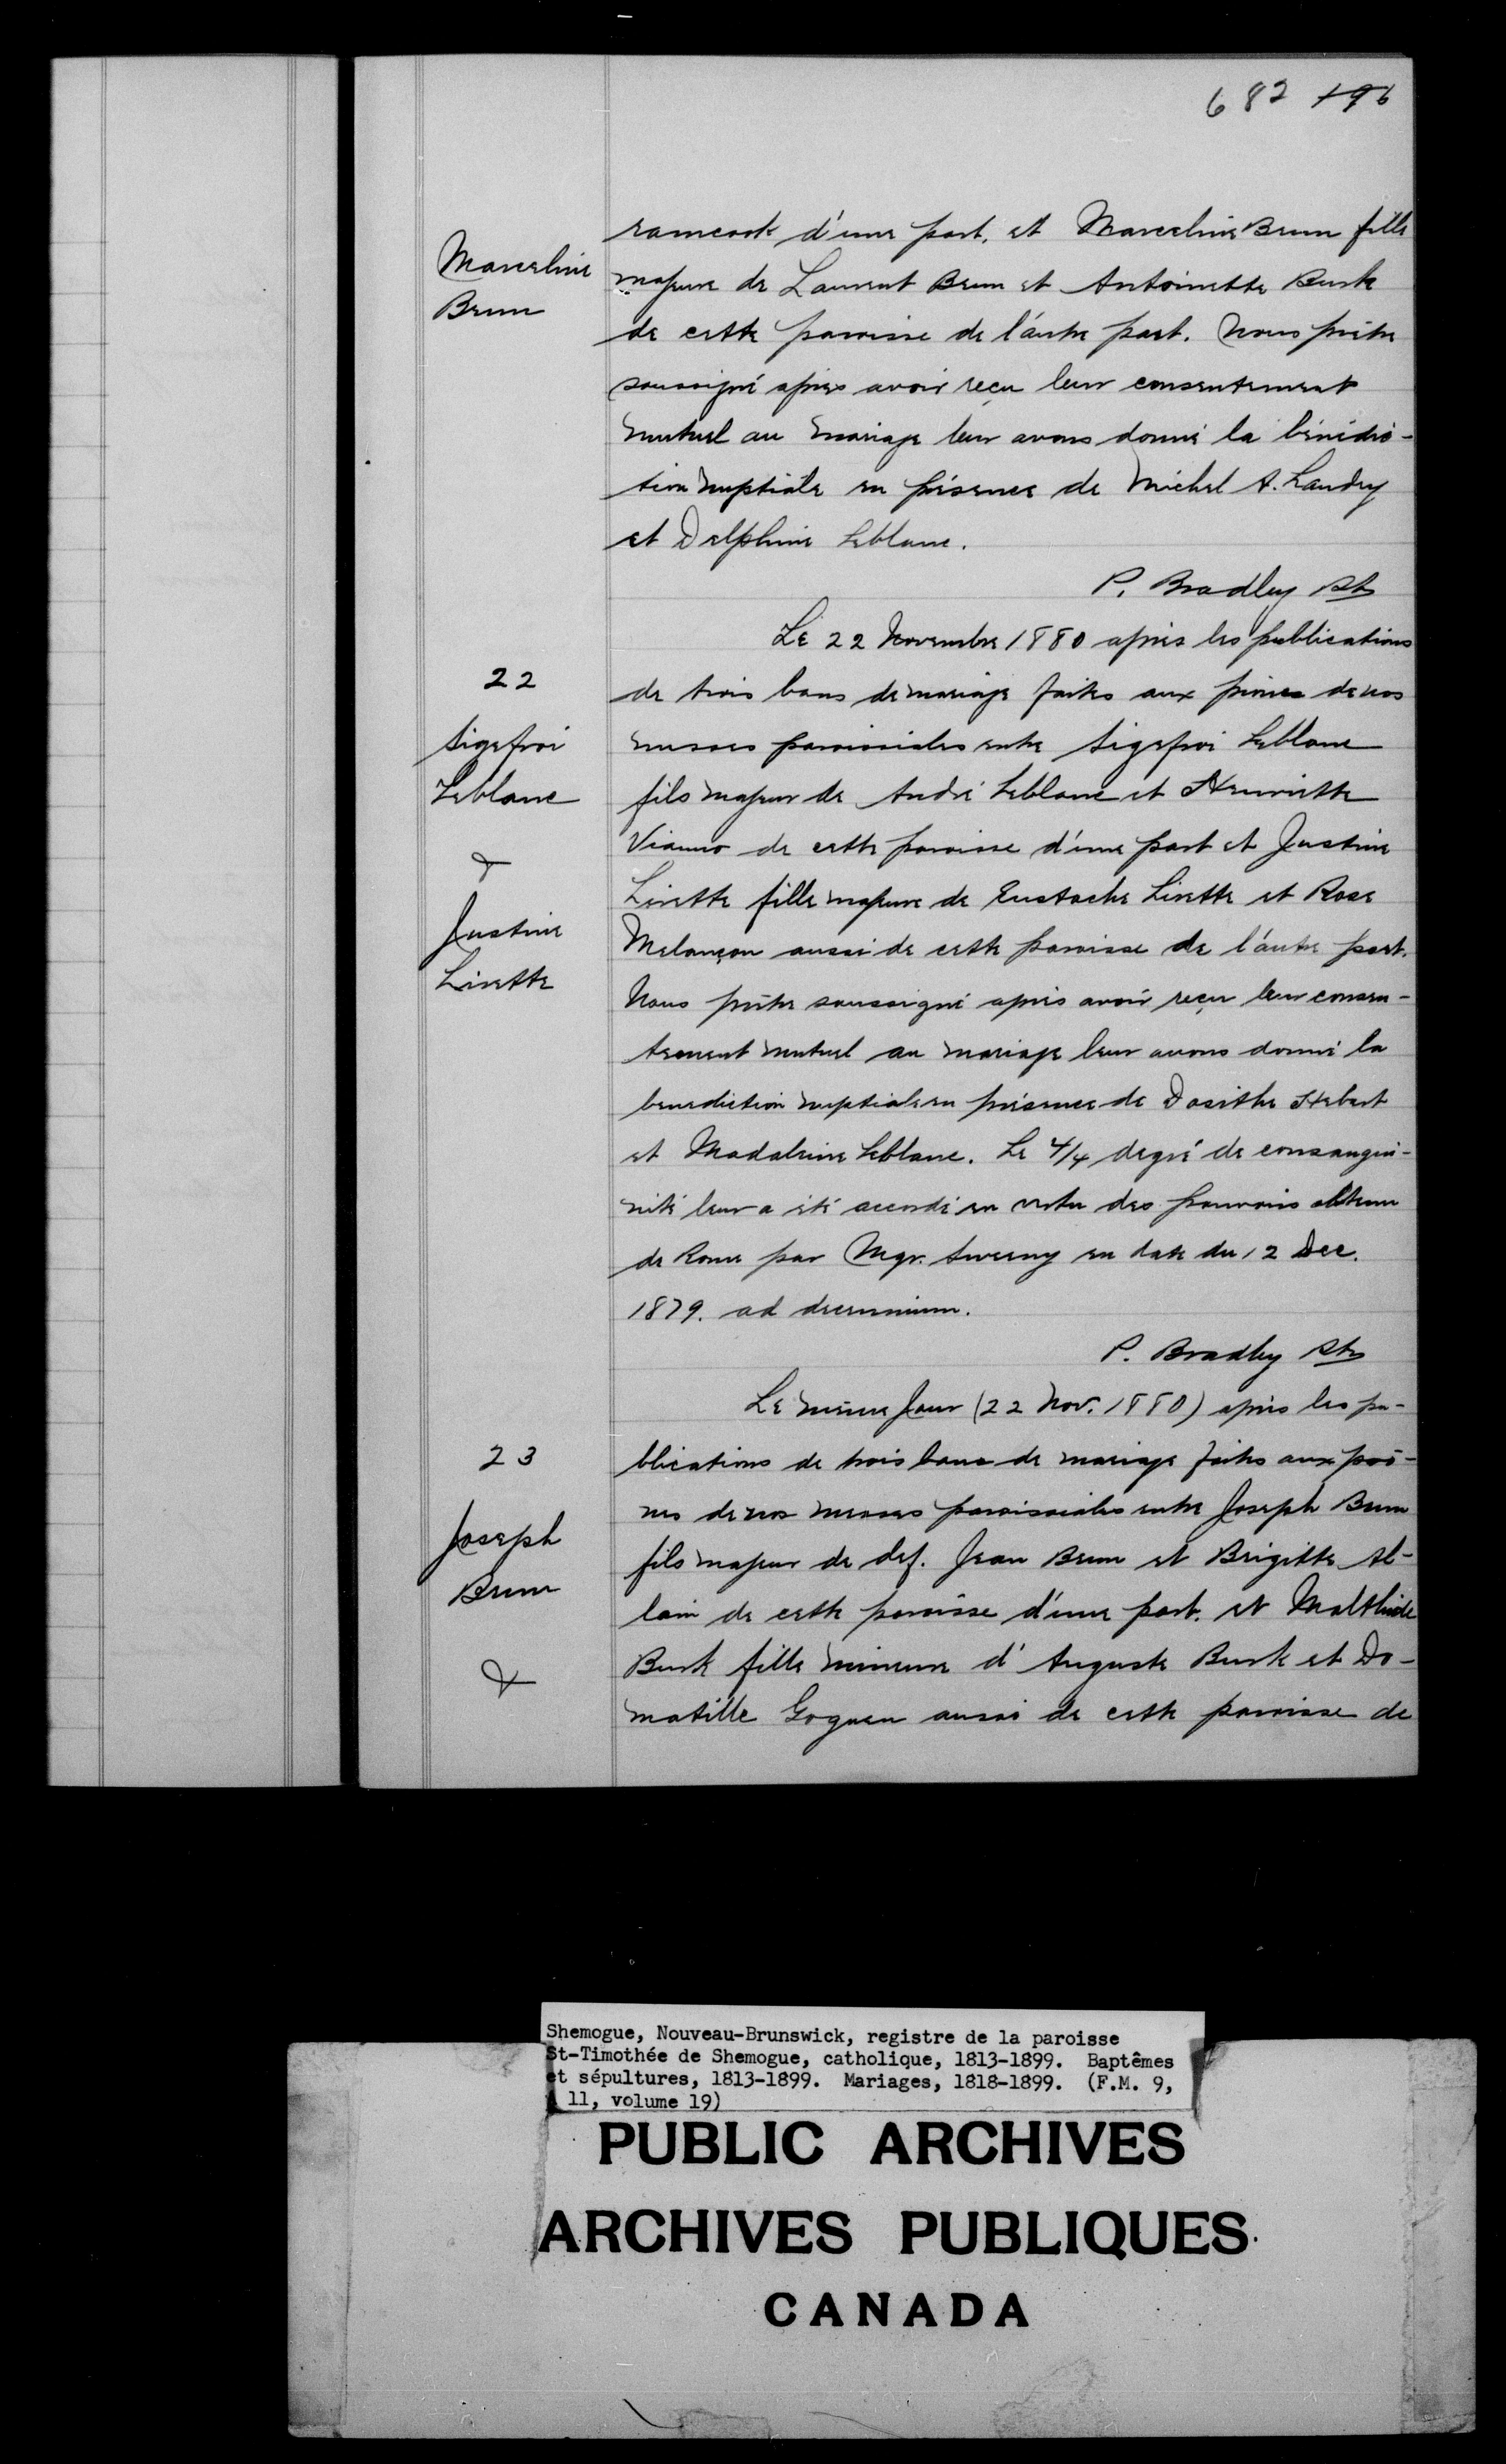 682 196
ramcook d'une part, et Marceline Brun fille
Marceline
Brun
majeure de Laurent Brun et Antoinette Burk
de cette paroisse de l'autre part. Nous prêtre
soussigné après avoir reçu leur consentement
mutuel au mariage leur avons donné la bénédic-
tion nuptiale en présence de Michel A. Landry
et Delphine Leblanc.
P. Bradley Ptr
Le 22 Novembre 1880 après les publications
22
de trois bans de mariage faites aux prônes de nos
Sigefroi
Leblanc
&
Justine
Lirette
messes paroissiales entre Sigefroi Leblanc
fils majeur de André Leblanc et Henriette
de cette paroisse d'une part et Justine
Lirette fille majeure de Eustache Lirette et Rose
Melançon aussi de cette paroisse de l'autre part.
Nous prêtre soussigné après avoir reçu leur consen-
tement mutuel au mariage leur avons donné la
benediction nuptiale en présence de Dosithe Hebert
et Madeleine Leblanc. Le 4/4 degré de consangui-
nité leur a été accordé en vertu des pouvoirs obtenu
de Rome par Mgr. Sweeny en date du 12 Dec.
1879. ad decennium.
P. Bradley Ptr
Le même Jour (22 Nov. 1880) après les pu-
23
Joseph
Brun
&
blications de trois bans de mariage faites aux prô-
nes de nos messes paroissiales entre Joseph Brun
fils majeur de def. Jean Brun et Brigitte Al-
lain de cette paroisse d'une part. et Malthide
Burk fille mineure d'Auguste Burk et Do-
matille Goguen aussi de cette paroisse de
Shemogue, Nouveau-Brunswick, registre de la paroisse
St-Timothée de Shemogue, catholique, 1813-1899. Baptêmes
et sépultures, 1813-1899. Mariages, 1818-1899. (F.M. 9,
11, volume 19)
PUBLIC ARCHIVES
ARCHIVES PUBLIQUES
CANADA